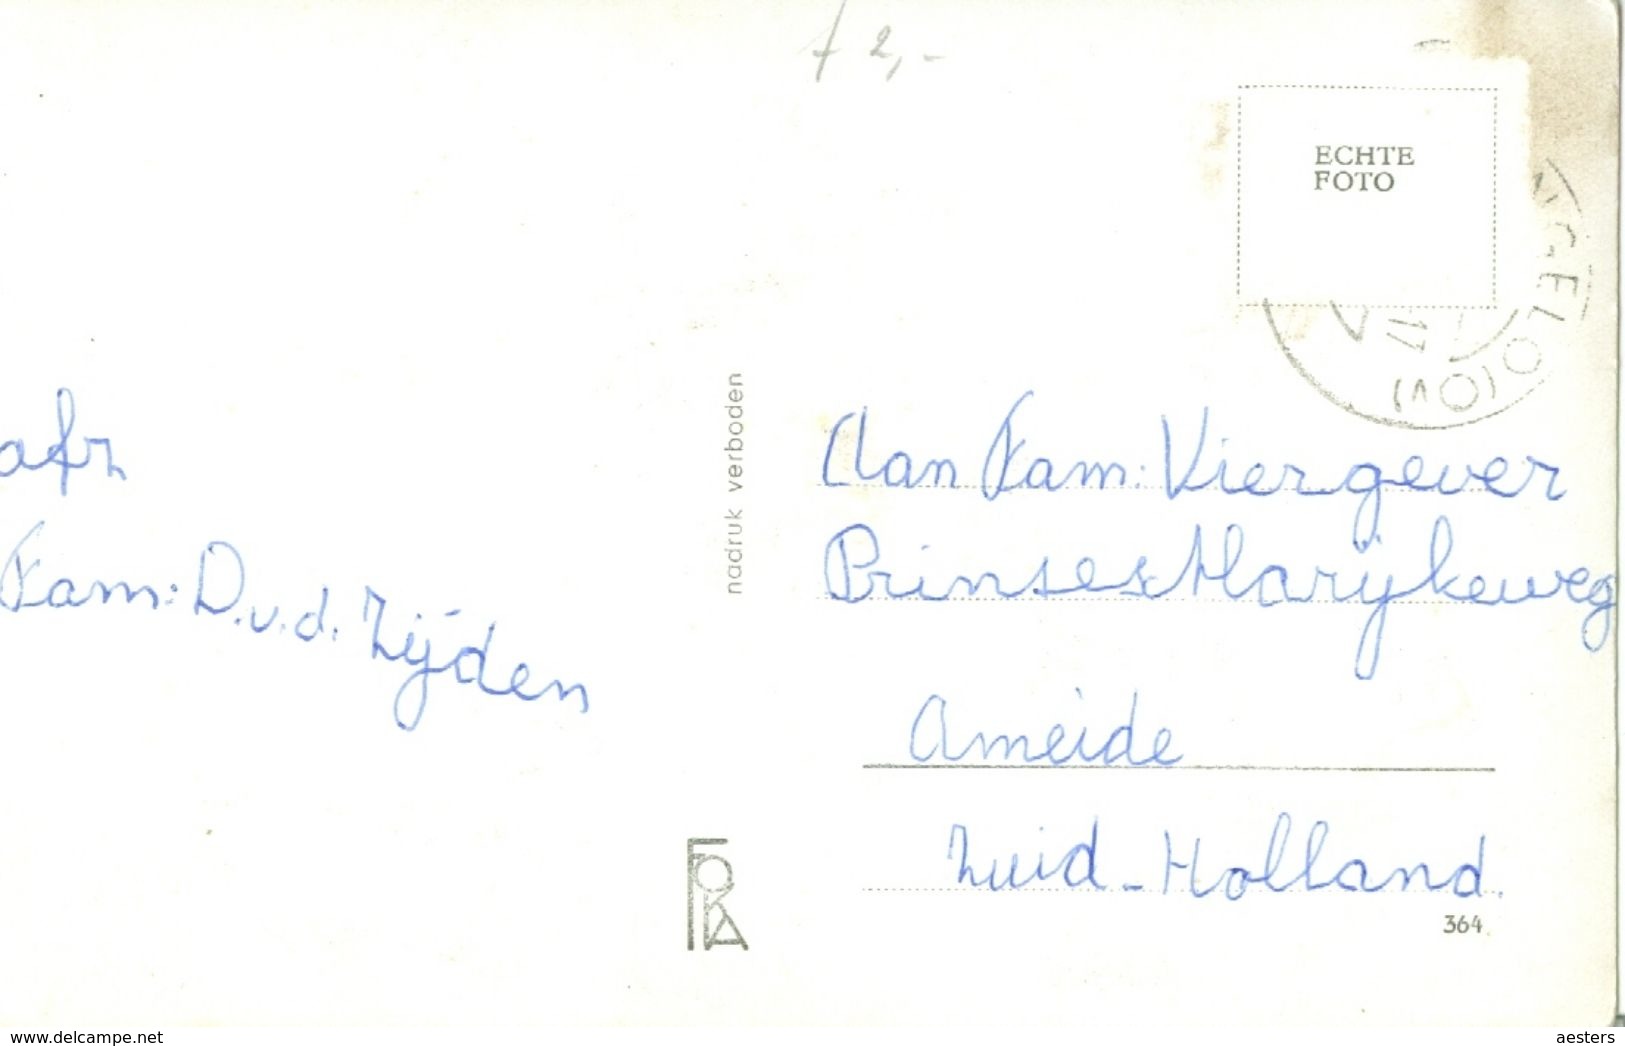 f 2,-
ECHTE
FOTO
NGELO (OV)
17
afz
Fam: D. v. d. Zijden
nadruk verboden
Aan Fam: Viergever
Prinses Marijkeweg
Ameide
Zuid-Holland.
FOKA
364
www.delcampe.net
aesters